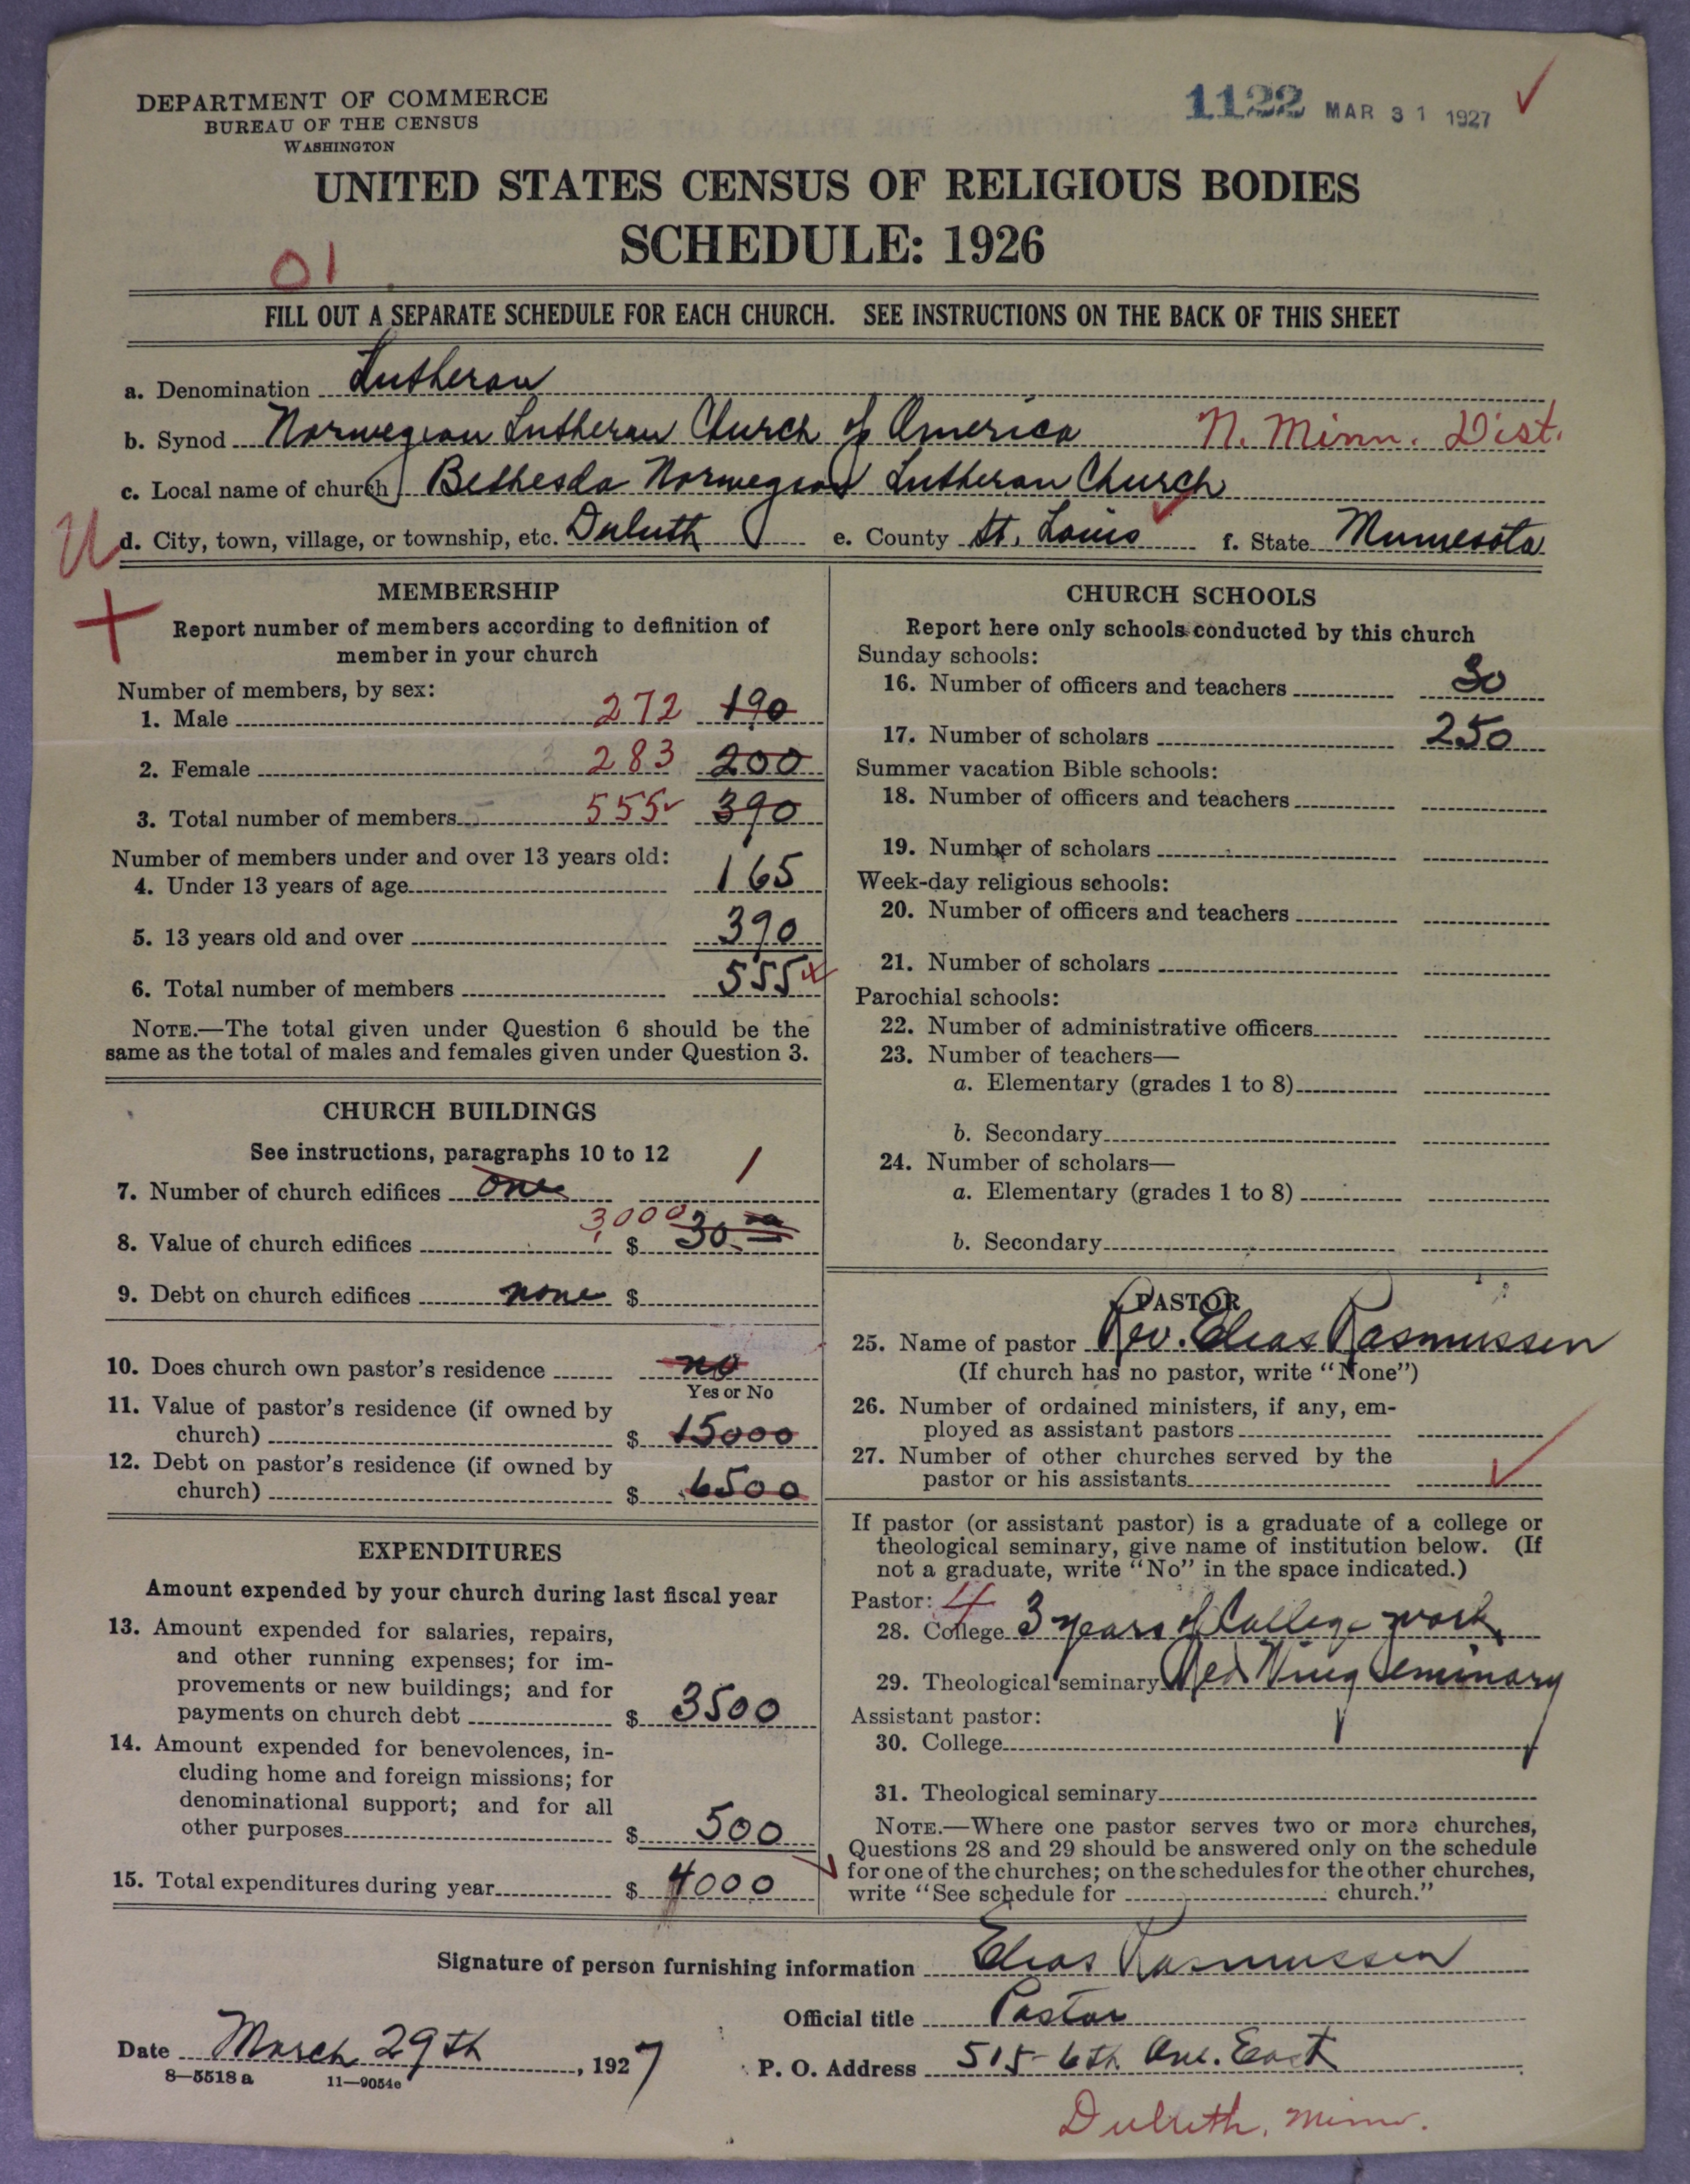 DEPARTMENT OF COMMERCE
BUREAU OF THE CENSUS
WASHINGTON
1122 MAR 31 1927
UNITED STATES CENSUS OF RELIGIOUS BODIES
SCHEDULE: 1926
01
FILL OUT A SEPARATE SCHEDULE FOR EACH CHURCH. SEE INSTRUCTIONS ON THE BACK OF THIS SHEET
a. Denomination Lutheran
b. Synod Norwegian Lutheran Church of America N. Minn. Dist.
c. Local name of church Bethesda Norwegian Lutheran Church
U d. City, town, village, or township, etc. Duluth e. County St. Louis f. State Minnesota
MEMBERSHIP
Report number of members according to definition of
member in your church
Number of members, by sex:
1. Male 272 190
2. Female 283 200
3. Total number of members 555 390
Number of members under and over 13 years old:
4. Under 13 years of age 165
5. 13 years old and over 390
6. Total number of members 555
NOTE.—The total given under Question 6 should be the
same as the total of males and females given under Question 3.
CHURCH BUILDINGS
See instructions, paragraphs 10 to 12
7. Number of church edifices one 1
8. Value of church edifices 3000 $ 30
9. Debt on church edifices none $
10. Does church own pastor's residence no
Yes or No
11. Value of pastor's residence (if owned by
church) $ 15000
12. Debt on pastor's residence (if owned by
church) $ 6500
EXPENDITURES
Amount expended by your church during last fiscal year
13. Amount expended for salaries, repairs,
and other running expenses; for im-
provements or new buildings; and for
payments on church debt $ 3500
14. Amount expended for benevolences, in-
cluding home and foreign missions; for
denominational support; and for all
other purposes $ 500
15. Total expenditures during year $ 4000
CHURCH SCHOOLS
Report here only schools conducted by this church
Sunday schools:
16. Number of officers and teachers 30
17. Number of scholars 250
Summer vacation Bible schools:
18. Number of officers and teachers
19. Number of scholars
Week-day religious schools:
20. Number of officers and teachers
21. Number of scholars
Parochial schools:
22. Number of administrative officers
23. Number of teachers—
a. Elementary (grades 1 to 8)
b. Secondary
24. Number of scholars—
a. Elementary (grades 1 to 8)
b. Secondary
PASTOR
25. Name of pastor Rev. Elias Rasmussen
(If church has no pastor, write "None")
26. Number of ordained ministers, if any, em-
ployed as assistant pastors
27. Number of other churches served by the
pastor or his assistants
If pastor (or assistant pastor) is a graduate of a college or
theological seminary, give name of institution below. (If
not a graduate, write "No" in the space indicated.)
Pastor: 4
28. College 3 years of College work
29. Theological seminary Red Wing Seminary
Assistant pastor:
30. College
31. Theological seminary
NOTE.—Where one pastor serves two or more churches,
Questions 28 and 29 should be answered only on the schedule
for one of the churches; on the schedules for the other churches,
write "See schedule for church."
Signature of person furnishing information Elias Rasmussen
Official title Pastor
Date March 29th, 1927
P. O. Address 515-6th Ave. East
8—5518 a 11—9054c
Duluth, Minn.